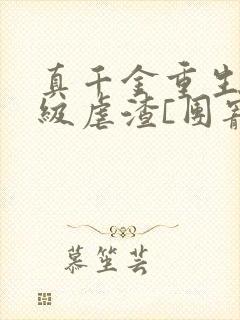 真千金重生
級虐渣[團寵
慕笙芸